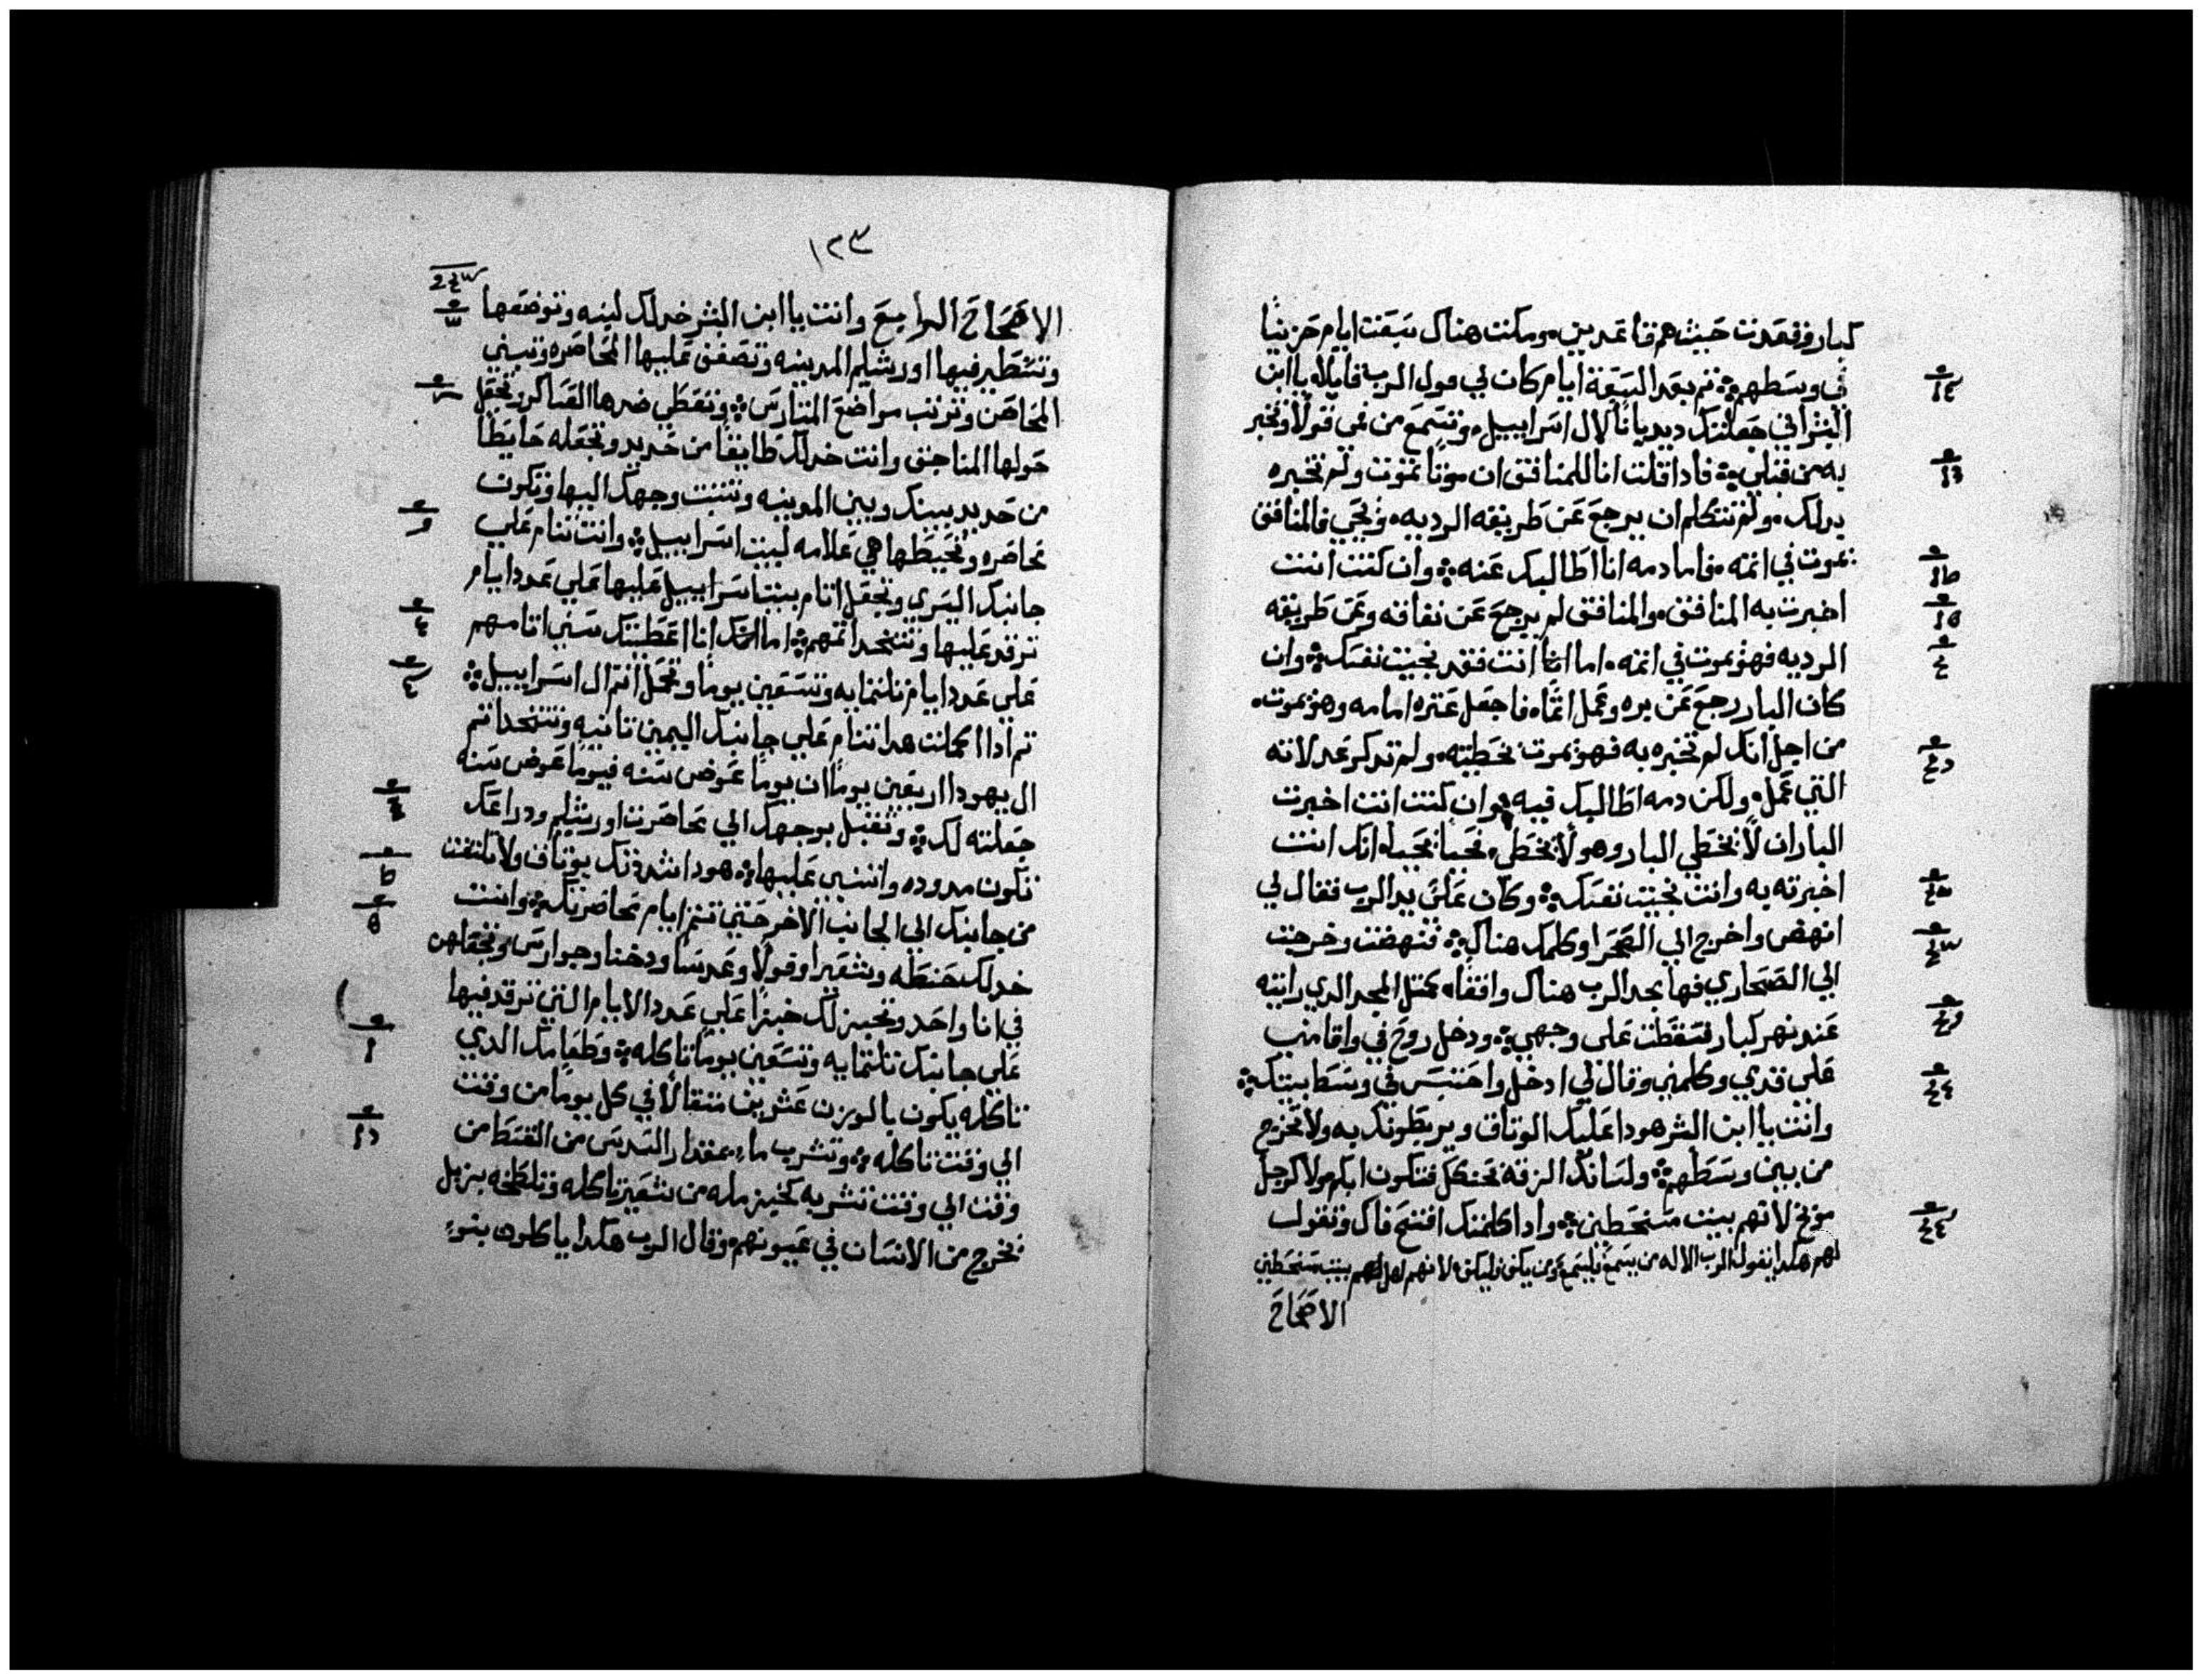 كبار وقعدت حيث هم قاعدين، ومكتت هناك سبعت ايام حزينا
في وسطهم ܀ تم بعد السبعة ايام كان لي قول الرب قايلا، يا ابن
البشر اني جعلتك ديديانا لال اسراييل، وتسمع من فمي قولا وتخبر
به من قبلي ܀ فادا قلت انا للمنافق ان موتا تموت ولم تخبره
بدلك، ولم تتكلم ان يرجع عن طريقه الرديه، ويحيى فالمنافق
يموت في اتمه، فاما دمه انا اطالبك عنه ܀ وان كنت انت
اخبرت به المنافق، والمنافق لم يرجع عن نفاقه وعن طريقه
الرديه فهو يموت في اتمه، اما انت فقد نجيت نفسك ܀ وان
كان البار رجع عن بره وعمل اتما، فاجعل عتره امامه وهو يموت،
من اجل انك لم تخبره به فهو يموت بخطيته، ولم تدكر عدلاته
التي عمل، ولكن دمه اطالبك فيه ܀ وان كنت انت اخبرت
البار ان لا يخطي البار وهو لا يخطي، فحيا يحيا، انك انت
اخبرته به وانت نجيت نفسك ܀ وكان علي يد الرب فقال لي
انهض واخرج الي الصحرا وكلمك هناك ܀ فنهضت وخرجت
الي الصحاري فها بجد الرب هناك واقفا، كمتل المجد الدي رايته
عند نهر كبار فسقطت علي وجهي ܀ ودخل روح في واقامني
علي قدمي وكلمني وقال لي ادخل واحتبس في وسط بيتك ܀
وانت يا ابن البشر هودا عليك الوتاق ويربطونك به ولا تخرج
من بين وسطهم ܀ ولسانك الزقه بحنكك فتكون ابكم ولا كرجل
موبخ لانهم بيت متخطين ܀ وادا كلمتك افتح فاك وتقول
لهم هكدا يقول الرب الاله من يسمع فليسمع ومن يكف فليكف لانهم بيت متخطين
الاصحاح
١٢٣
الاصحاح الرابع وانت يا ابن البشر خد لك لبنه وتوضعها
وتسطير فيها اورشليم المدينه وتصفف عليها المحاصره وتبني
المحاصن وترتب مواضع المتارس ܀ وتعطي ضدها العساكر وتجعل
حولها المناجنق وانت خد لك طابقا من حديد وتجعله حايطا
من حديد بينك وبين المدينه وتتبت وجهك اليها وتكون
محاصره وتحيطها هي علامه لبيت اسراييل ܀ وانت تنام علي
جانبك اليسري وتجعل اتام بيت اسراييل عليها علي عدد ايام
ترقد عليها وتتخد اتمهم ܀ اما انا اعطيتك سني اتامهم
علي عدد ايام تلتمايه وتسعين يوما وتحمل اتم ال اسراييل ܀
تم ادا اكملت هدا تنام علي جانبك اليمين تانيه وتتخد اتم
ال يهودا اربعين يوما ان يوما عوض سنه فيوما عوض سنه
جعلته لك ܀ وتقبل بوجهك الي محاصرت اورشليم ودراعك
تكون مدوده واتنبي عليها ܀ هودا شدتك بوتاق ولا تلتفت
من جانبك الي الجانب الاخر حتي تتم ايام محاصرتك ܀ وانت
خد لك حنطه وشعيرا وفولا وعدسا ودخنا وجوارس وتجعلهن
في انا واحد وتخبز لك خبزا علي عدد الايام التي ترقد فيها
علي جانبك تلتمايه وتسعين يوما تاكله ܀ وطعامك الدي
تاكله يكون بالوزن عشرين متقالا في كل يوما من وقت
الي وقت تاكله ܀ وتشرب ماء بمقدار السدس من القسط من
وقت الي وقت تشربه كخبز مله من شعير تاكله وتلطخه بزبل
يخرج من الانسان في عيونهم، وقال الرب هكدا ياكلون بنوء